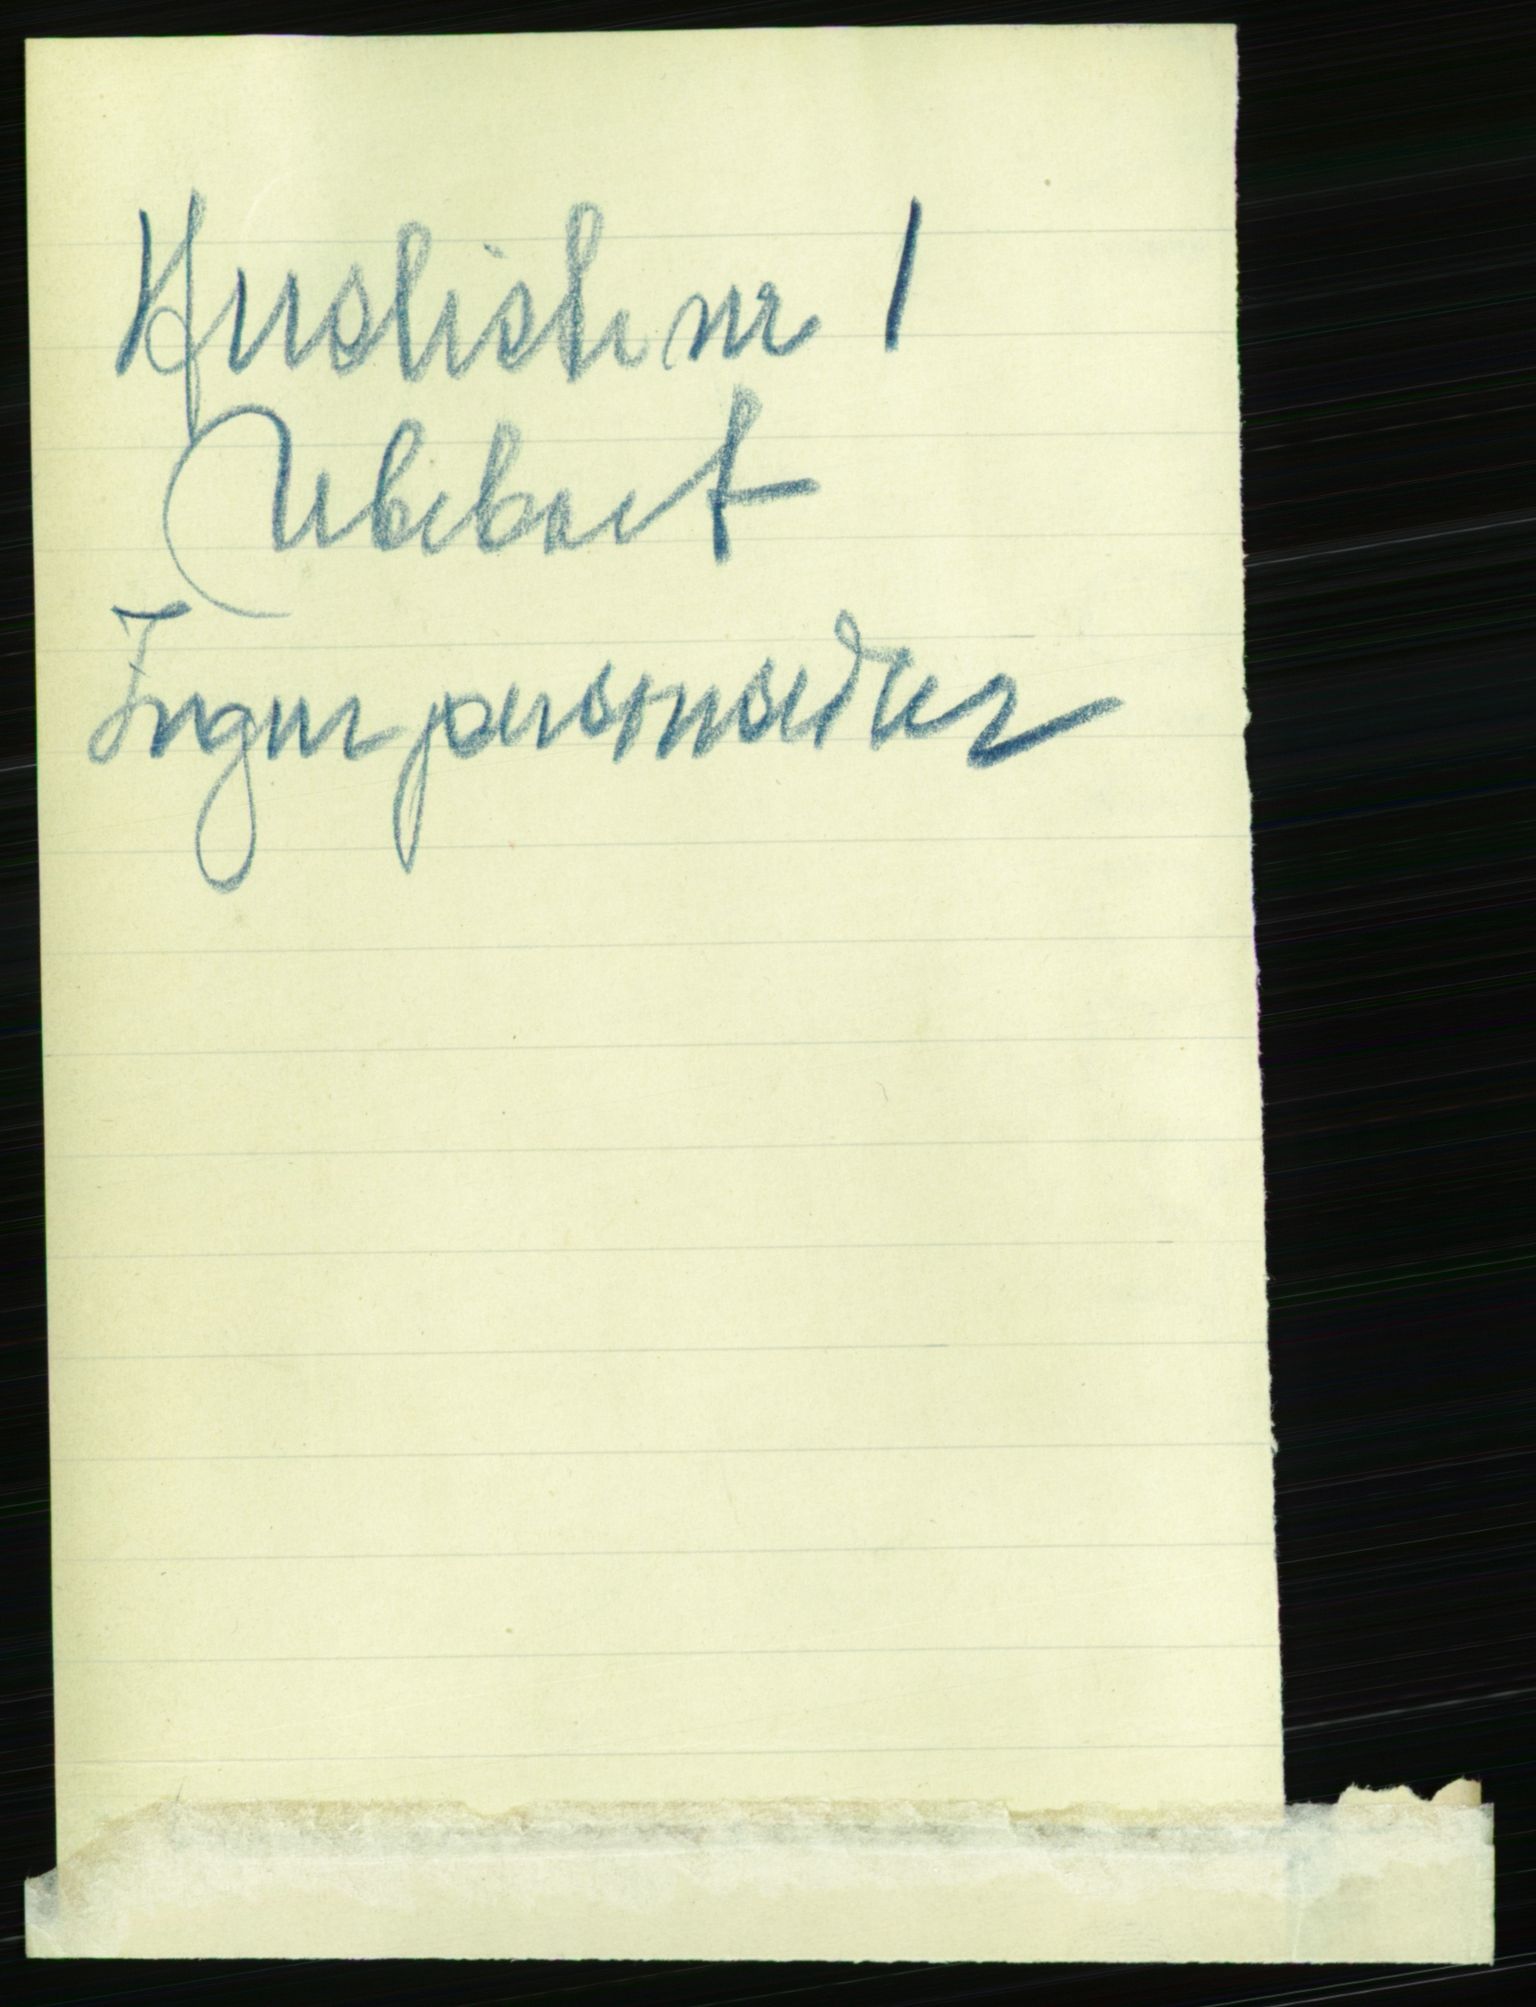 Husliste nr 1
Ubeboet
Ingen personsedler